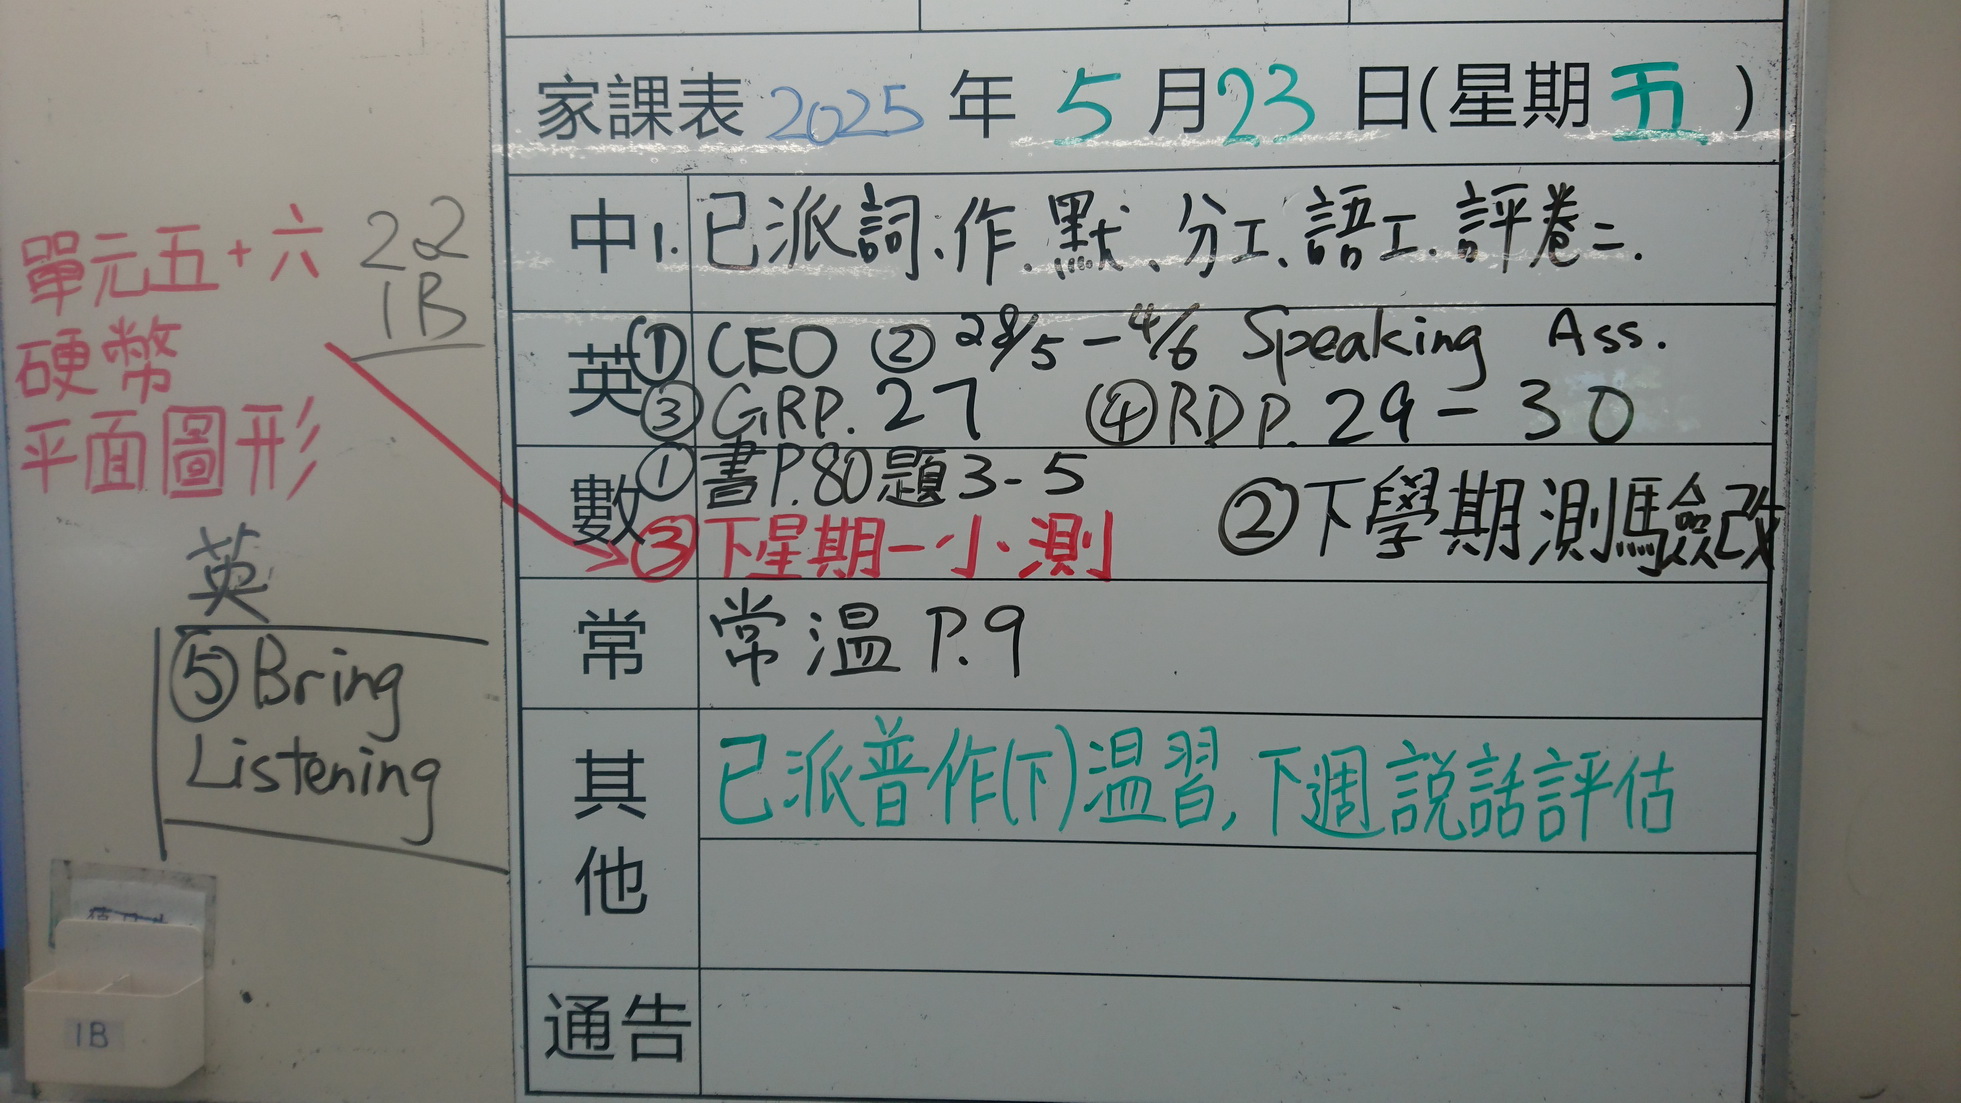 家課表 2025 年 5 月 23 日(星期 五 )
中 1. 已派詞、作、默、分工、語工、評卷二.
英 ① CEO ② 28/5 - 4/6 Speaking Ass.
③ GRP. 27 ④ RDP. 29 - 30
數 ① 書P.80題3-5 ② 下學期測驗改
③ 下星期一小測
常 常溫 P.9
其他 已派普作(下)溫習, 下週説話評估
通告
單元五+六
硬幣
平面圖形
22
1B
英
⑤ Bring
Listening
1B